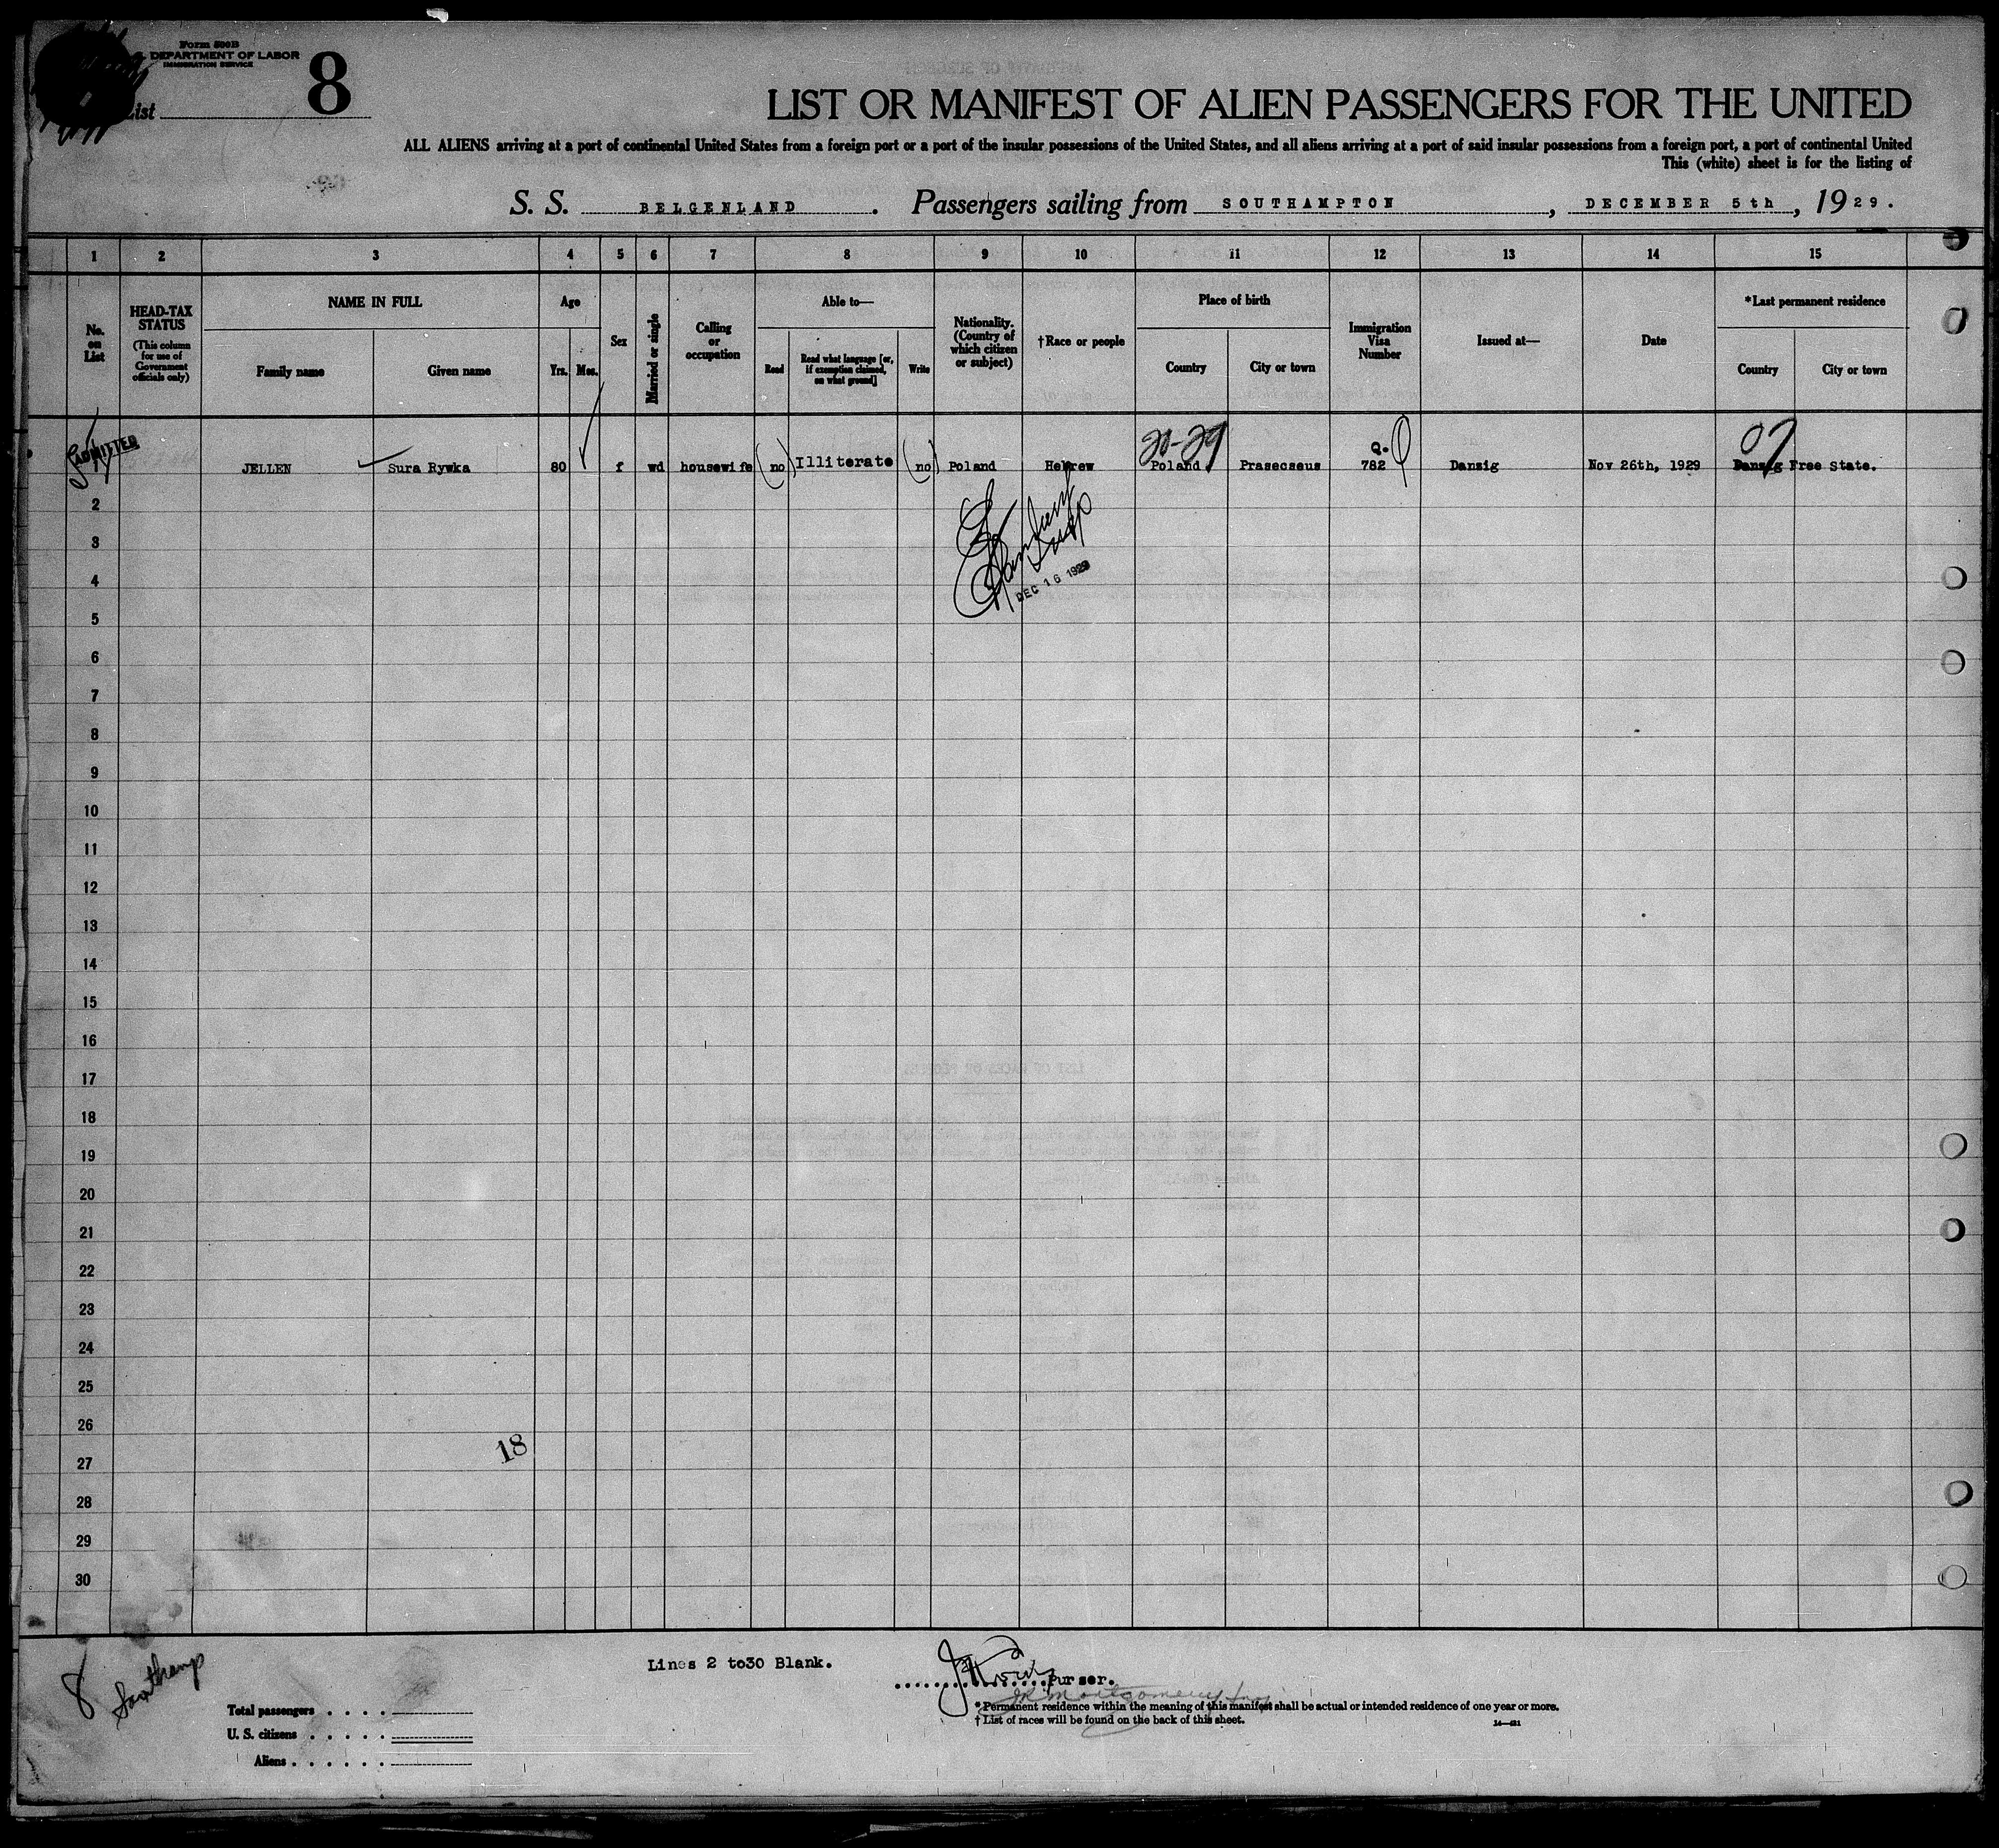 Form 500B
DEPARTMENT OF LABOR
IMMIGRATION SERVICE
List 8
LIST OR MANIFEST OF ALIEN PASSENGERS FOR THE UNITED
ALL ALIENS arriving at a port of continental United States from a foreign port or a port of the insular possessions of the United States, and all aliens arriving at a port of said insular possessions from a foreign port, a port of continental United
This (white) sheet is for the listing of
S. S. BELGENLAND. Passengers sailing from SOUTHAMPTON, DECEMBER 5th, 1929.
1 2 3 4 5 6 7 8 9 10 11 12 13 14 15
No. on List
HEAD-TAX STATUS
(This column for use of Government officials only)
NAME IN FULL
Family name Given name
Age
Yrs. Mos.
Sex
Married or single
Calling or occupation
Able to—
Read
Read what language [or, if exemption claimed, on what ground]
Write
Nationality. (Country of which citizen or subject)
†Race or people
Place of birth
Country City or town
Immigration Visa Number
Issued at—
Date
*Last permanent residence
Country City or town
ADMITTED
20-29 Q. 07
JELLEN Sura Rywka 80 f wd housewife (no) Illiterate (no) Poland Hebrew Poland Prasecseus 782 Danzig Nov 26th, 1929 Danzig Free State.
2
3
DEC 16 1929
4
5
6
7
8
9
10
11
12
13
14
15
16
17
18
19
20
21
22
23
24
25
26
18
27
28
29
30
8 Southamp
Lines 2 to30 Blank.
Purser.
Total passengers
U. S. citizens
Aliens
* Permanent residence within the meaning of this manifest shall be actual or intended residence of one year or more.
† List of races will be found on the back of this sheet.